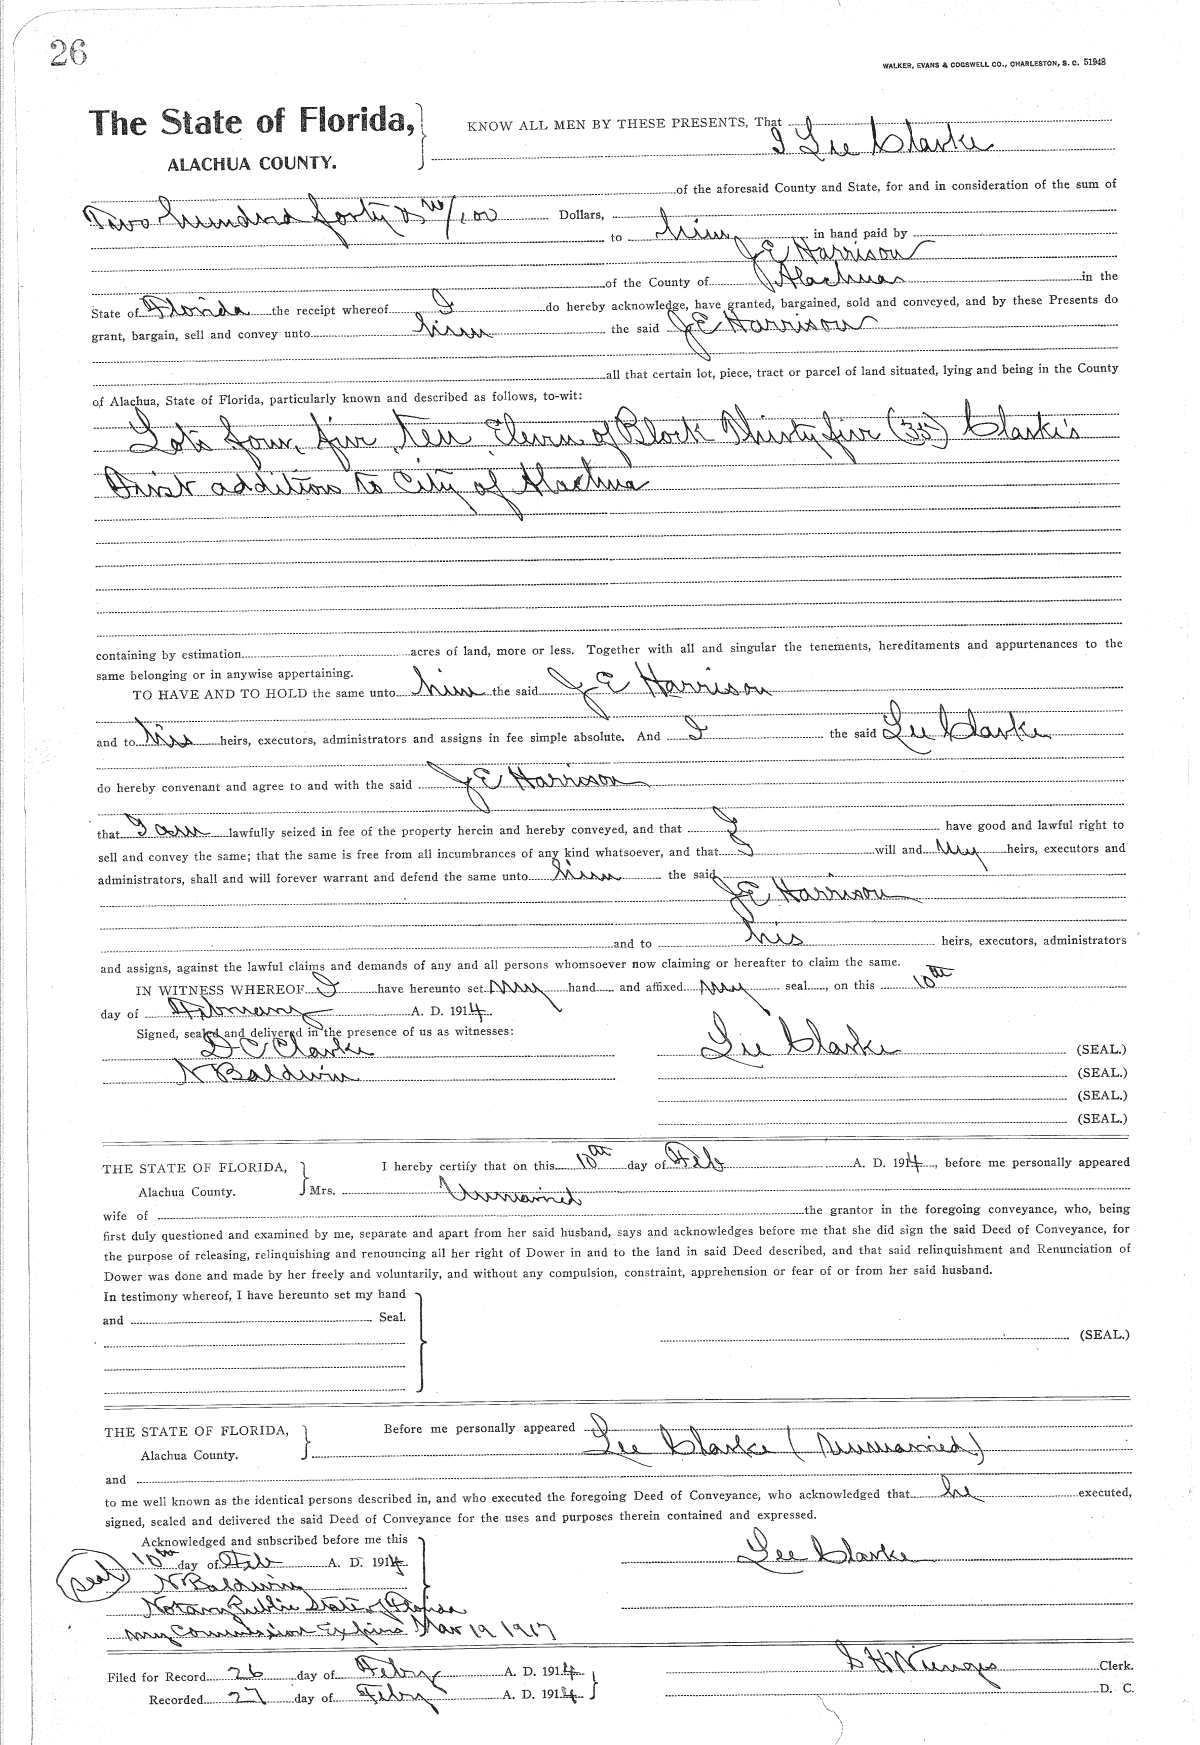 26
WALKER, EVANS & COGSWELL CO., CHARLESTON, S. C. 51948
The State of Florida, KNOW ALL MEN BY THESE PRESENTS, That
ALACHUA COUNTY. I Lee Clarke
of the aforesaid County and State, for and in consideration of the sum of
Two hundred forty & no/100 Dollars,
to him in hand paid by
J E Harrison
of the County of Alachua in the
State of Florida the receipt whereof I do hereby acknowledge, have granted, bargained, sold and conveyed, and by these Presents do
grant, bargain, sell and convey unto him the said J E Harrison
all that certain lot, piece, tract or parcel of land situated, lying and being in the County
of Alachua, State of Florida, particularly known and described as follows, to-wit:
Lots four, five, Ten, Eleven of Block Thirty five (35) Clarke's
First addition to City of Alachua
containing by estimation acres of land, more or less. Together with all and singular the tenements, hereditaments and appurtenances to the
same belonging or in anywise appertaining.
TO HAVE AND TO HOLD the same unto him the said J E Harrison
and to his heirs, executors, administrators and assigns in fee simple absolute. And I the said Lee Clarke
do hereby convenant and agree to and with the said J E Harrison
that I am lawfully seized in fee of the property herein and hereby conveyed, and that I have good and lawful right to
sell and convey the same; that the same is free from all incumbrances of any kind whatsoever, and that I will and my heirs, executors and
administrators, shall and will forever warrant and defend the same unto him the said
J E Harrison
and to his heirs, executors, administrators
and assigns, against the lawful claims and demands of any and all persons whomsoever now claiming or hereafter to claim the same.
IN WITNESS WHEREOF I have hereunto set my hand and affixed my seal, on this 10th
day of February A. D. 1914.
Signed, sealed and delivered in the presence of us as witnesses:
D C Clarke Lee Clarke (SEAL.)
N Baldwin (SEAL.)
(SEAL.)
(SEAL.)
THE STATE OF FLORIDA, I hereby certify that on this 10th day of Feb A. D. 1914, before me personally appeared
Alachua County. Mrs. Unmarried
wife of the grantor in the foregoing conveyance, who, being
first duly questioned and examined by me, separate and apart from her said husband, says and acknowledges before me that she did sign the said Deed of Conveyance, for
the purpose of releasing, relinquishing and renouncing all her right of Dower in and to the land in said Deed described, and that said relinquishment and Renunciation of
Dower was done and made by her freely and voluntarily, and without any compulsion, constraint, apprehension or fear of or from her said husband.
In testimony whereof, I have hereunto set my hand
and Seal.
(SEAL.)
THE STATE OF FLORIDA, Before me personally appeared
Alachua County. Lee Clarke (Unmarried)
and
to me well known as the identical persons described in, and who executed the foregoing Deed of Conveyance, who acknowledged that he executed,
signed, sealed and delivered the said Deed of Conveyance for the uses and purposes therein contained and expressed.
Acknowledged and subscribed before me this
(seal) 10th day of Feb A. D. 1914 Lee Clarke
N Baldwin
Notary Public State of Florida
my Commission Expires Mar 19 1917
Filed for Record 26 day of Feby A. D. 1914 S H Wienges Clerk.
Recorded 27 day of Feby A. D. 1914 D. C.